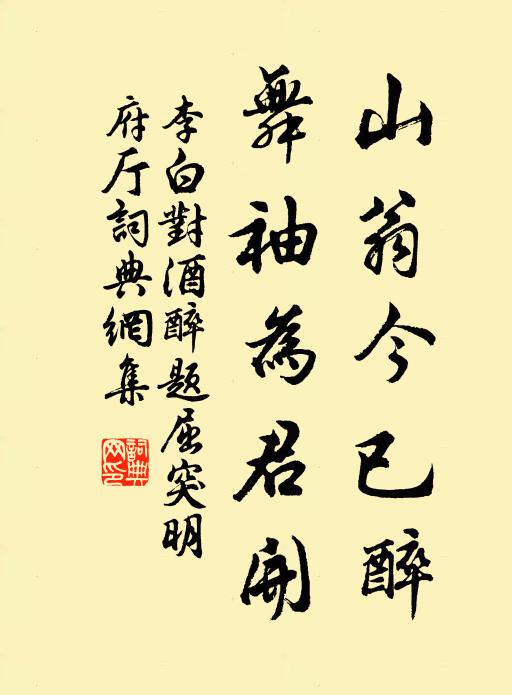 山翁今已醉
舞袖為君開
李白對酒醉題屈突明
府厅詞典網集
詞典
网印